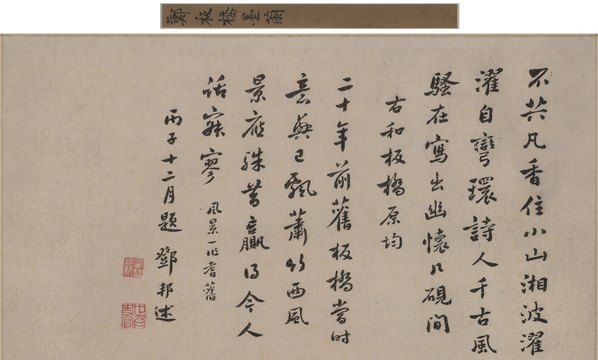 鄭板橋墨蘭
不共凡香住小山湘波濯
濯自彎環詩人千古風
騷在寫出幽懷几硯間
右和板橋原均
二十年前舊板橋當時
意興已飄蕭竹西風
景應殊昔贏得今人
話寂寥 風景一作耆舊
丙子十二月題 鄧邦述